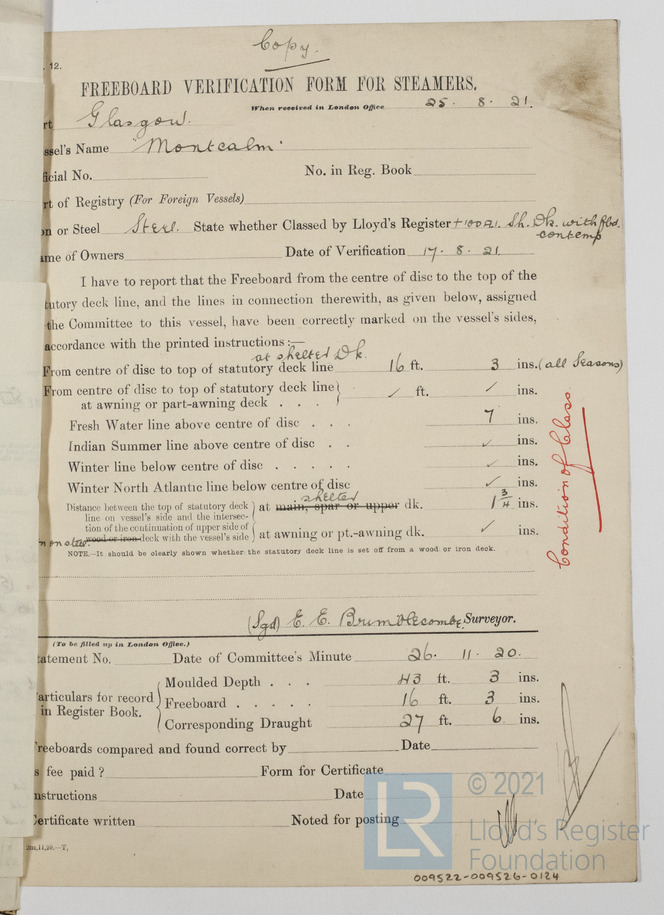 Copy.
. 12.
FREEBOARD VERIFICATION FORM FOR STEAMERS.
When received in London Office 25. 8. 21.
rt Glasgow.
ssel's Name "Montcalm"
ficial No. No. in Reg. Book
rt of Registry (For Foreign Vessels)
on or Steel Steel. State whether Classed by Lloyd's Register +100A1. Sh. Dk. with fbd.
contemp
ame of Owners Date of Verification 17. 8. 21
I have to report that the Freeboard from the centre of disc to the top of the
tutory deck line, and the lines in connection therewith, as given below, assigned
the Committee to this vessel, have been correctly marked on the vessel's sides,
accordance with the printed instructions :—
at shelter Dk.
From centre of disc to top of statutory deck line 16 ft. 3 ins. (all Seasons)
From centre of disc to top of statutory deck line ✓ ft. ✓ ins.
at awning or part-awning deck . . .
Fresh Water line above centre of disc . . . 7 ins.
Indian Summer line above centre of disc . . ✓ ins.
Winter line below centre of disc . . . . . ✓ ins.
Winter North Atlantic line below centre of disc ✓ ins.
shelter
Distance between the top of statutory deck
line on vessel's side and the intersec-
tion of the continuation of upper side of
wood or iron deck with the vessel's side
at main, spar or upper dk. 1 3/4 ins.
at awning or pt.-awning dk. ✓ ins.
NOTE.—It should be clearly shown whether the statutory deck line is set off from a wood or iron deck.
Condition of Class.
(Sgd) E. E. Brimblecombe, Surveyor.
(To be filled up in London Office.)
tatement No. Date of Committee's Minute 26. 11. 20.
articulars for record
in Register Book.
Moulded Depth . . . 43 ft. 3 ins.
Freeboard . . . . . 16 ft. 3 ins.
Corresponding Draught 27 ft. 6 ins.
reeboards compared and found correct by Date
s fee paid ? Form for Certificate
nstructions Date
Certificate written Noted for posting
2m,11,20.—T,
LR
© 2021
Lloyd's Register
Foundation
009522-009526-0124